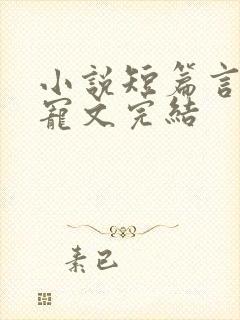 小說短篇言
寵文完結
素已